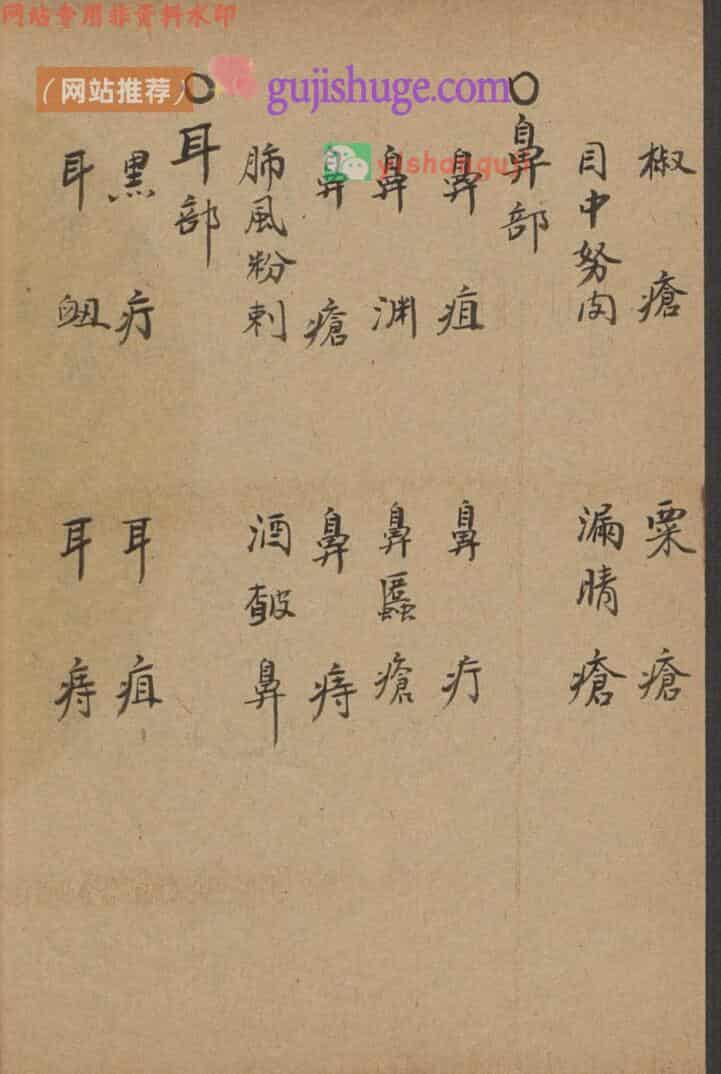 网站专用非资料水印
（网站推荐）
gujishuge.com
yishanguji
椒瘡 粟瘡
目中努肉 漏睛瘡
○鼻部
鼻疽 鼻疔
鼻渊 鼻䘌瘡
鼻瘡 鼻痔
肺風粉刺 酒皶鼻
○耳部
黑疔 耳疽
耳衄 耳痔